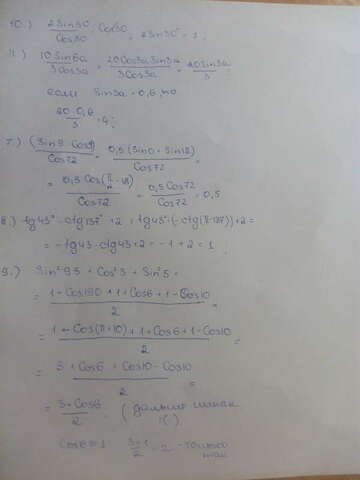 10.) 2Sin30·Cos30 / Cos30 = 2Sin30 = 1.
11.) 10Sin6a / 3Cos3a = 20Cos3a Sin3a / 3Cos3a = 20Sin3a / 3
если Sin3a = 0,6, то
20·0,6 / 3 = 4;
7.) (Sin9 Cos9) / Cos72 = 0,5 (Sin0 + Sin18) / Cos72 =
= 0,5 Cos(π/2 - 18) / Cos72 = 0,5 Cos72 / Cos72 = 0,5
8.) tg43° · ctg137° + 2 = tg43° · (-ctg(π-137)) + 2 =
= -tg43 · ctg43 + 2 = -1 + 2 = 1.
9.) Sin²95 + Cos²3 + Sin²5 =
= 1 + Cos190 + 1 + Cos6 + 1 - Cos10 / 2 =
= 1 - Cos(π+10) + 1 + Cos6 + 1 - Cos10 / 2 =
= 3 + Cos6 + Cos10 - Cos10 / 2 =
= 3 + Cos6 / 2 . (дальше никак :()
Cos6≈1 3+1 / 2 = 2 - только
так